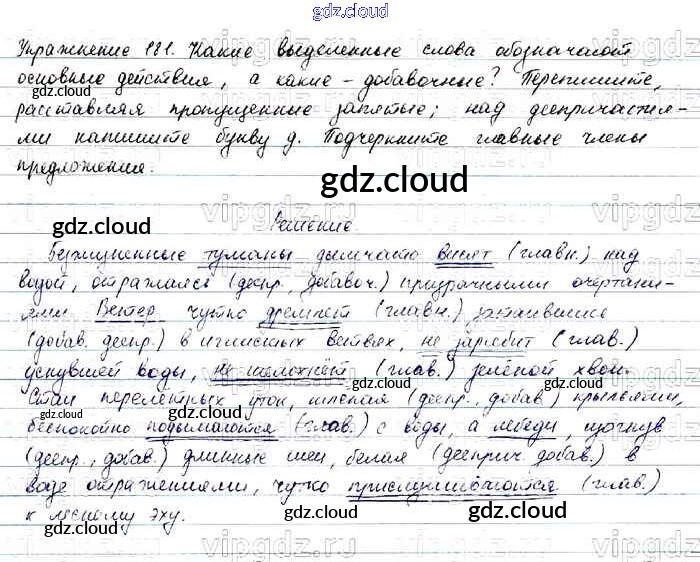 gdz.cloud
Упражнение 181. Какие выделенные слова обозначают
основные действия, а какие – добавочные? Перепишите,
расставляя пропущенные запятые; над деепричастия-
ми напишите букву д. Подчеркните главные члены
предложения.
gdz.cloud
gdz.cloud gdz.cloud
Решение.
туманы дымчато висят (главн.) над
водой, отражаясь (деепр., добавоч.) призрачными очертани-
ями. Ветер чутко дремлет (главн.) затаившись
(добав. деепр.) в иглистых ветвях, не зарябит (глав.)
уснувшей воды, не шелохнёт (глав.) зелёной хвои.
gdz.cloud gdz.cloud
Стаи перелётных уток, шлёпая (деепр., добав.) крыльями,
беспокойно подымаются (глав.) с воды, а лебеди, изогнув
(деепр., добав.) длинные шеи, белая (дееприч. добав.) в
воде отражениями, чутко прислушиваются (глав.)
к лесному эху.
gdz.cloud gdz.cloud
vipgdz